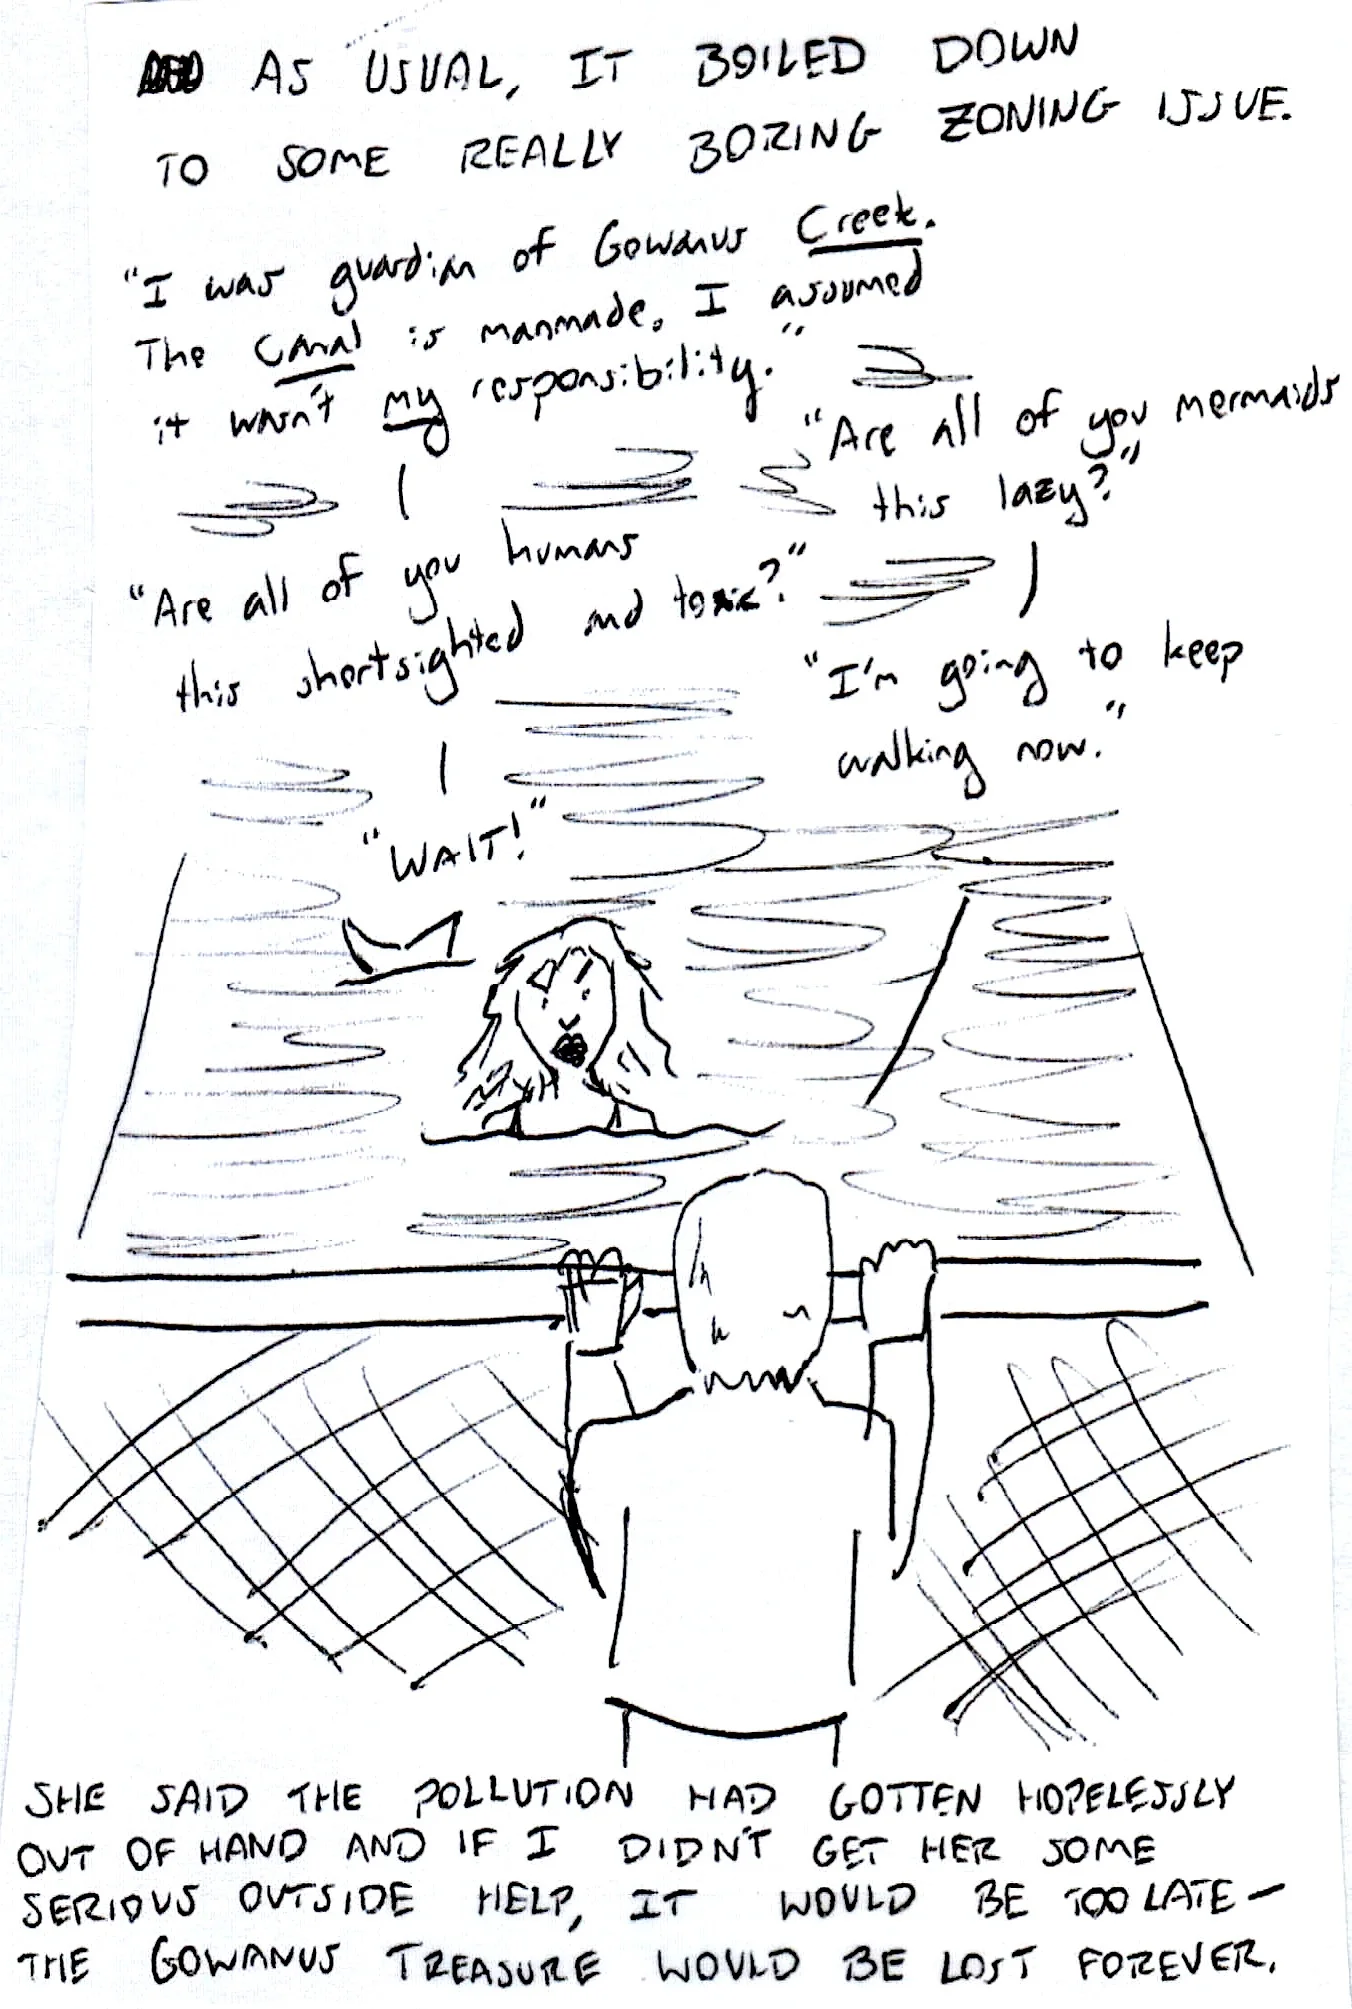 AS USUAL, IT BOILED DOWN
TO SOME REALLY BORING ZONING ISSUE.
"I was guardian of Gowanus Creek.
The Canal is manmade. I assumed
it wasn't my responsibility."
"Are all of you mermaids
this lazy?"
"Are all of you humans
this shortsighted and toxic?"
"I'm going to keep
walking now."
"WAIT!"
SHE SAID THE POLLUTION HAD GOTTEN HOPELESSLY
OUT OF HAND AND IF I DIDN'T GET HER SOME
SERIOUS OUTSIDE HELP, IT WOULD BE TOO LATE —
THE GOWANUS TREASURE WOULD BE LOST FOREVER.